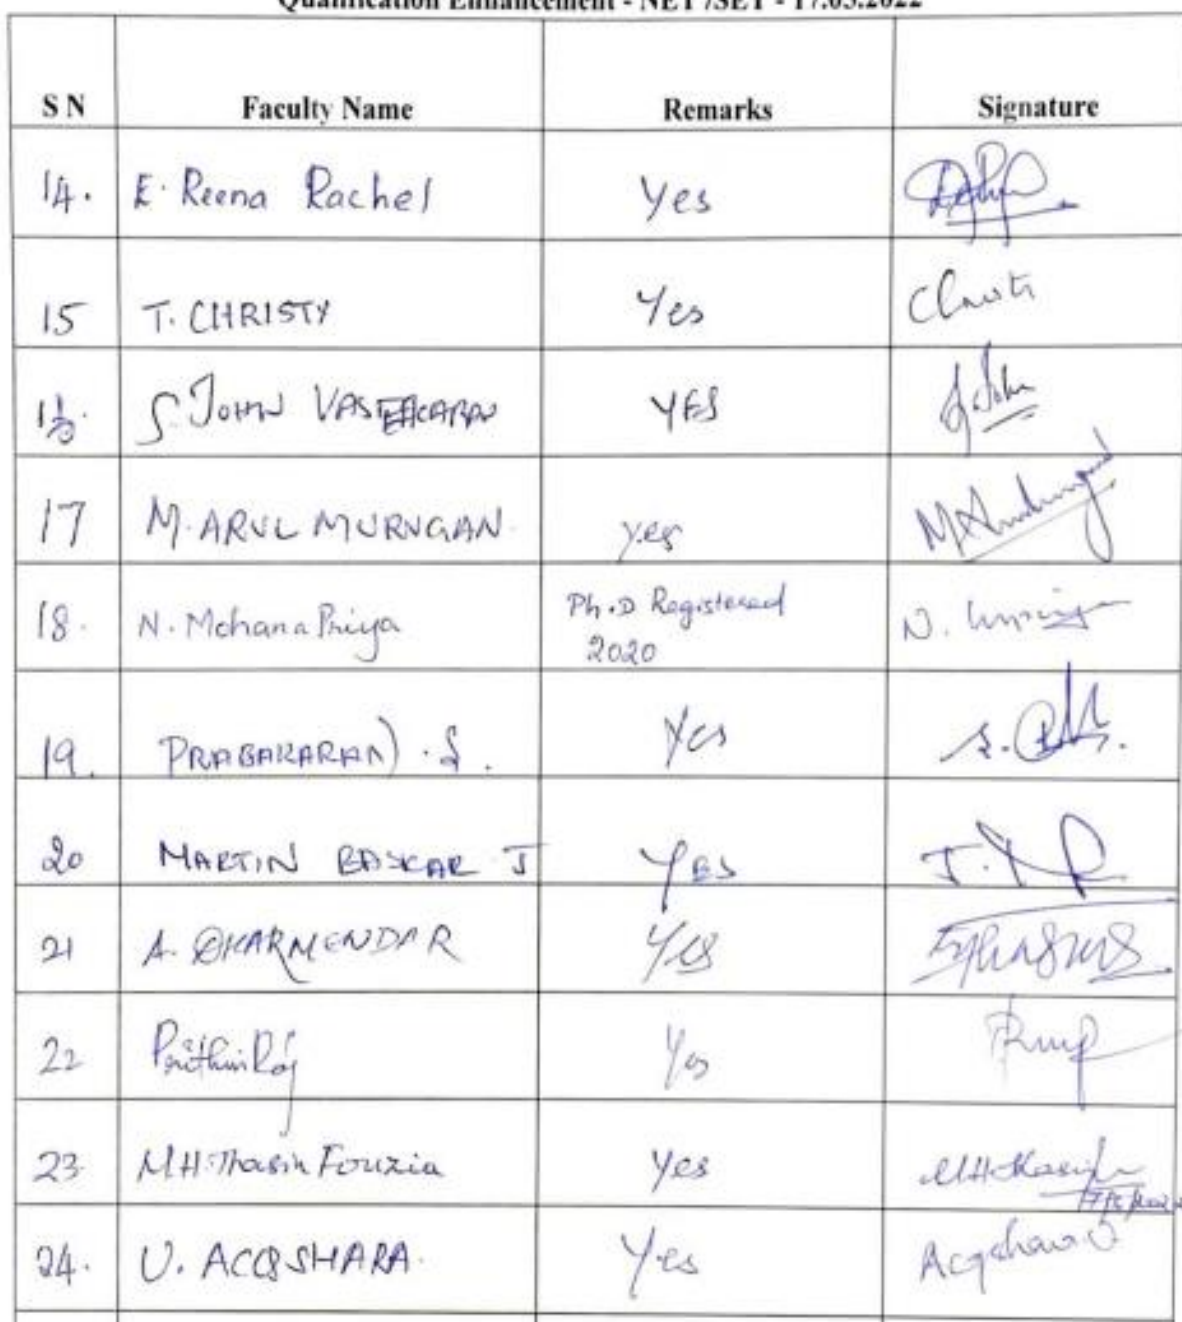 Qualification Enhancement - NET /SET - 17.05.2022
S N Faculty Name Remarks Signature
14. E. Reena Rachel Yes
15 T. CHRISTY Yes Christi
S. JOHN YES S. John
17 M. ARUL MURUGAN. yes M Arulmurugan
18. N. Mohana Priya Ph.D Registered
2020 N.
19. PRABAKARAN) .S. Yes S.
20 MARTIN BASKAR J YES J.
21 A. DHARMENDAR YES
22 PrithiviRaj Yes
23. M.H.Thasin Fouzia Yes
24. U. ACQSHARA. Yes Acqshara U